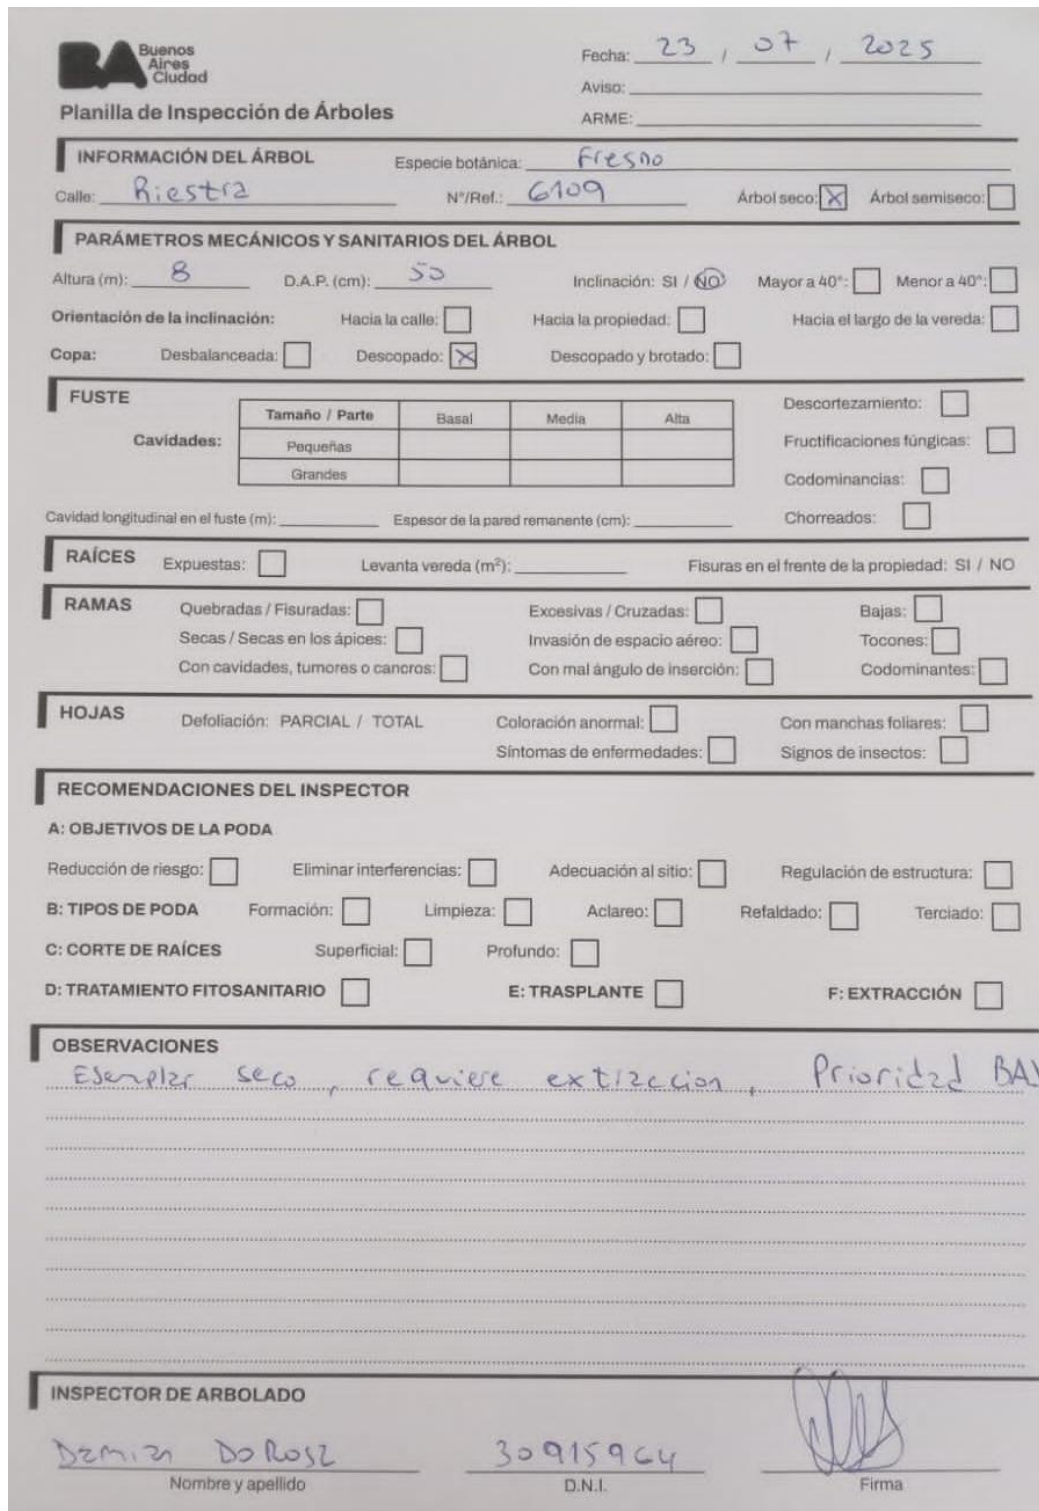 BA Buenos Aires Ciudad
Fecha: 23 / 07 / 2025
Aviso:
Planilla de Inspección de Árboles
ARME:
INFORMACIÓN DEL ÁRBOL Especie botánica: Fresno
Calle: Riestra N°/Ref.: 6109 Árbol seco: X Árbol semiseco:
PARÁMETROS MECÁNICOS Y SANITARIOS DEL ÁRBOL
Altura (m): 8 D.A.P. (cm): 50 Inclinación: SI / NO Mayor a 40°: Menor a 40°:
Orientación de la inclinación: Hacia la calle: Hacia la propiedad: Hacia el largo de la vereda:
Copa: Desbalanceada: Descopado: X Descopado y brotado:
FUSTE
Descortezamiento:
Tamaño / Parte Basal Media Alta
Cavidades: Pequeñas
Fructificaciones fúngicas:
Grandes
Codominancias:
Cavidad longitudinal en el fuste (m): Espesor de la pared remanente (cm): Chorreados:
RAÍCES Expuestas: Levanta vereda (m²): Fisuras en el frente de la propiedad: SI / NO
RAMAS Quebradas / Fisuradas: Excesivas / Cruzadas: Bajas:
Secas / Secas en los ápices: Invasión de espacio aéreo: Tocones:
Con cavidades, tumores o cancros: Con mal ángulo de inserción: Codominantes:
HOJAS Defoliación: PARCIAL / TOTAL Coloración anormal: Con manchas foliares:
Síntomas de enfermedades: Signos de insectos:
RECOMENDACIONES DEL INSPECTOR
A: OBJETIVOS DE LA PODA
Reducción de riesgo: Eliminar interferencias: Adecuación al sitio: Regulación de estructura:
B: TIPOS DE PODA Formación: Limpieza: Aclareo: Refaldado: Terciado:
C: CORTE DE RAÍCES Superficial: Profundo:
D: TRATAMIENTO FITOSANITARIO E: TRASPLANTE F: EXTRACCIÓN
OBSERVACIONES
Esemplar seco, requiere extraccion, Prioridad
INSPECTOR DE ARBOLADO
Damian Dorosz 30915964
Nombre y apellido D.N.I. Firma